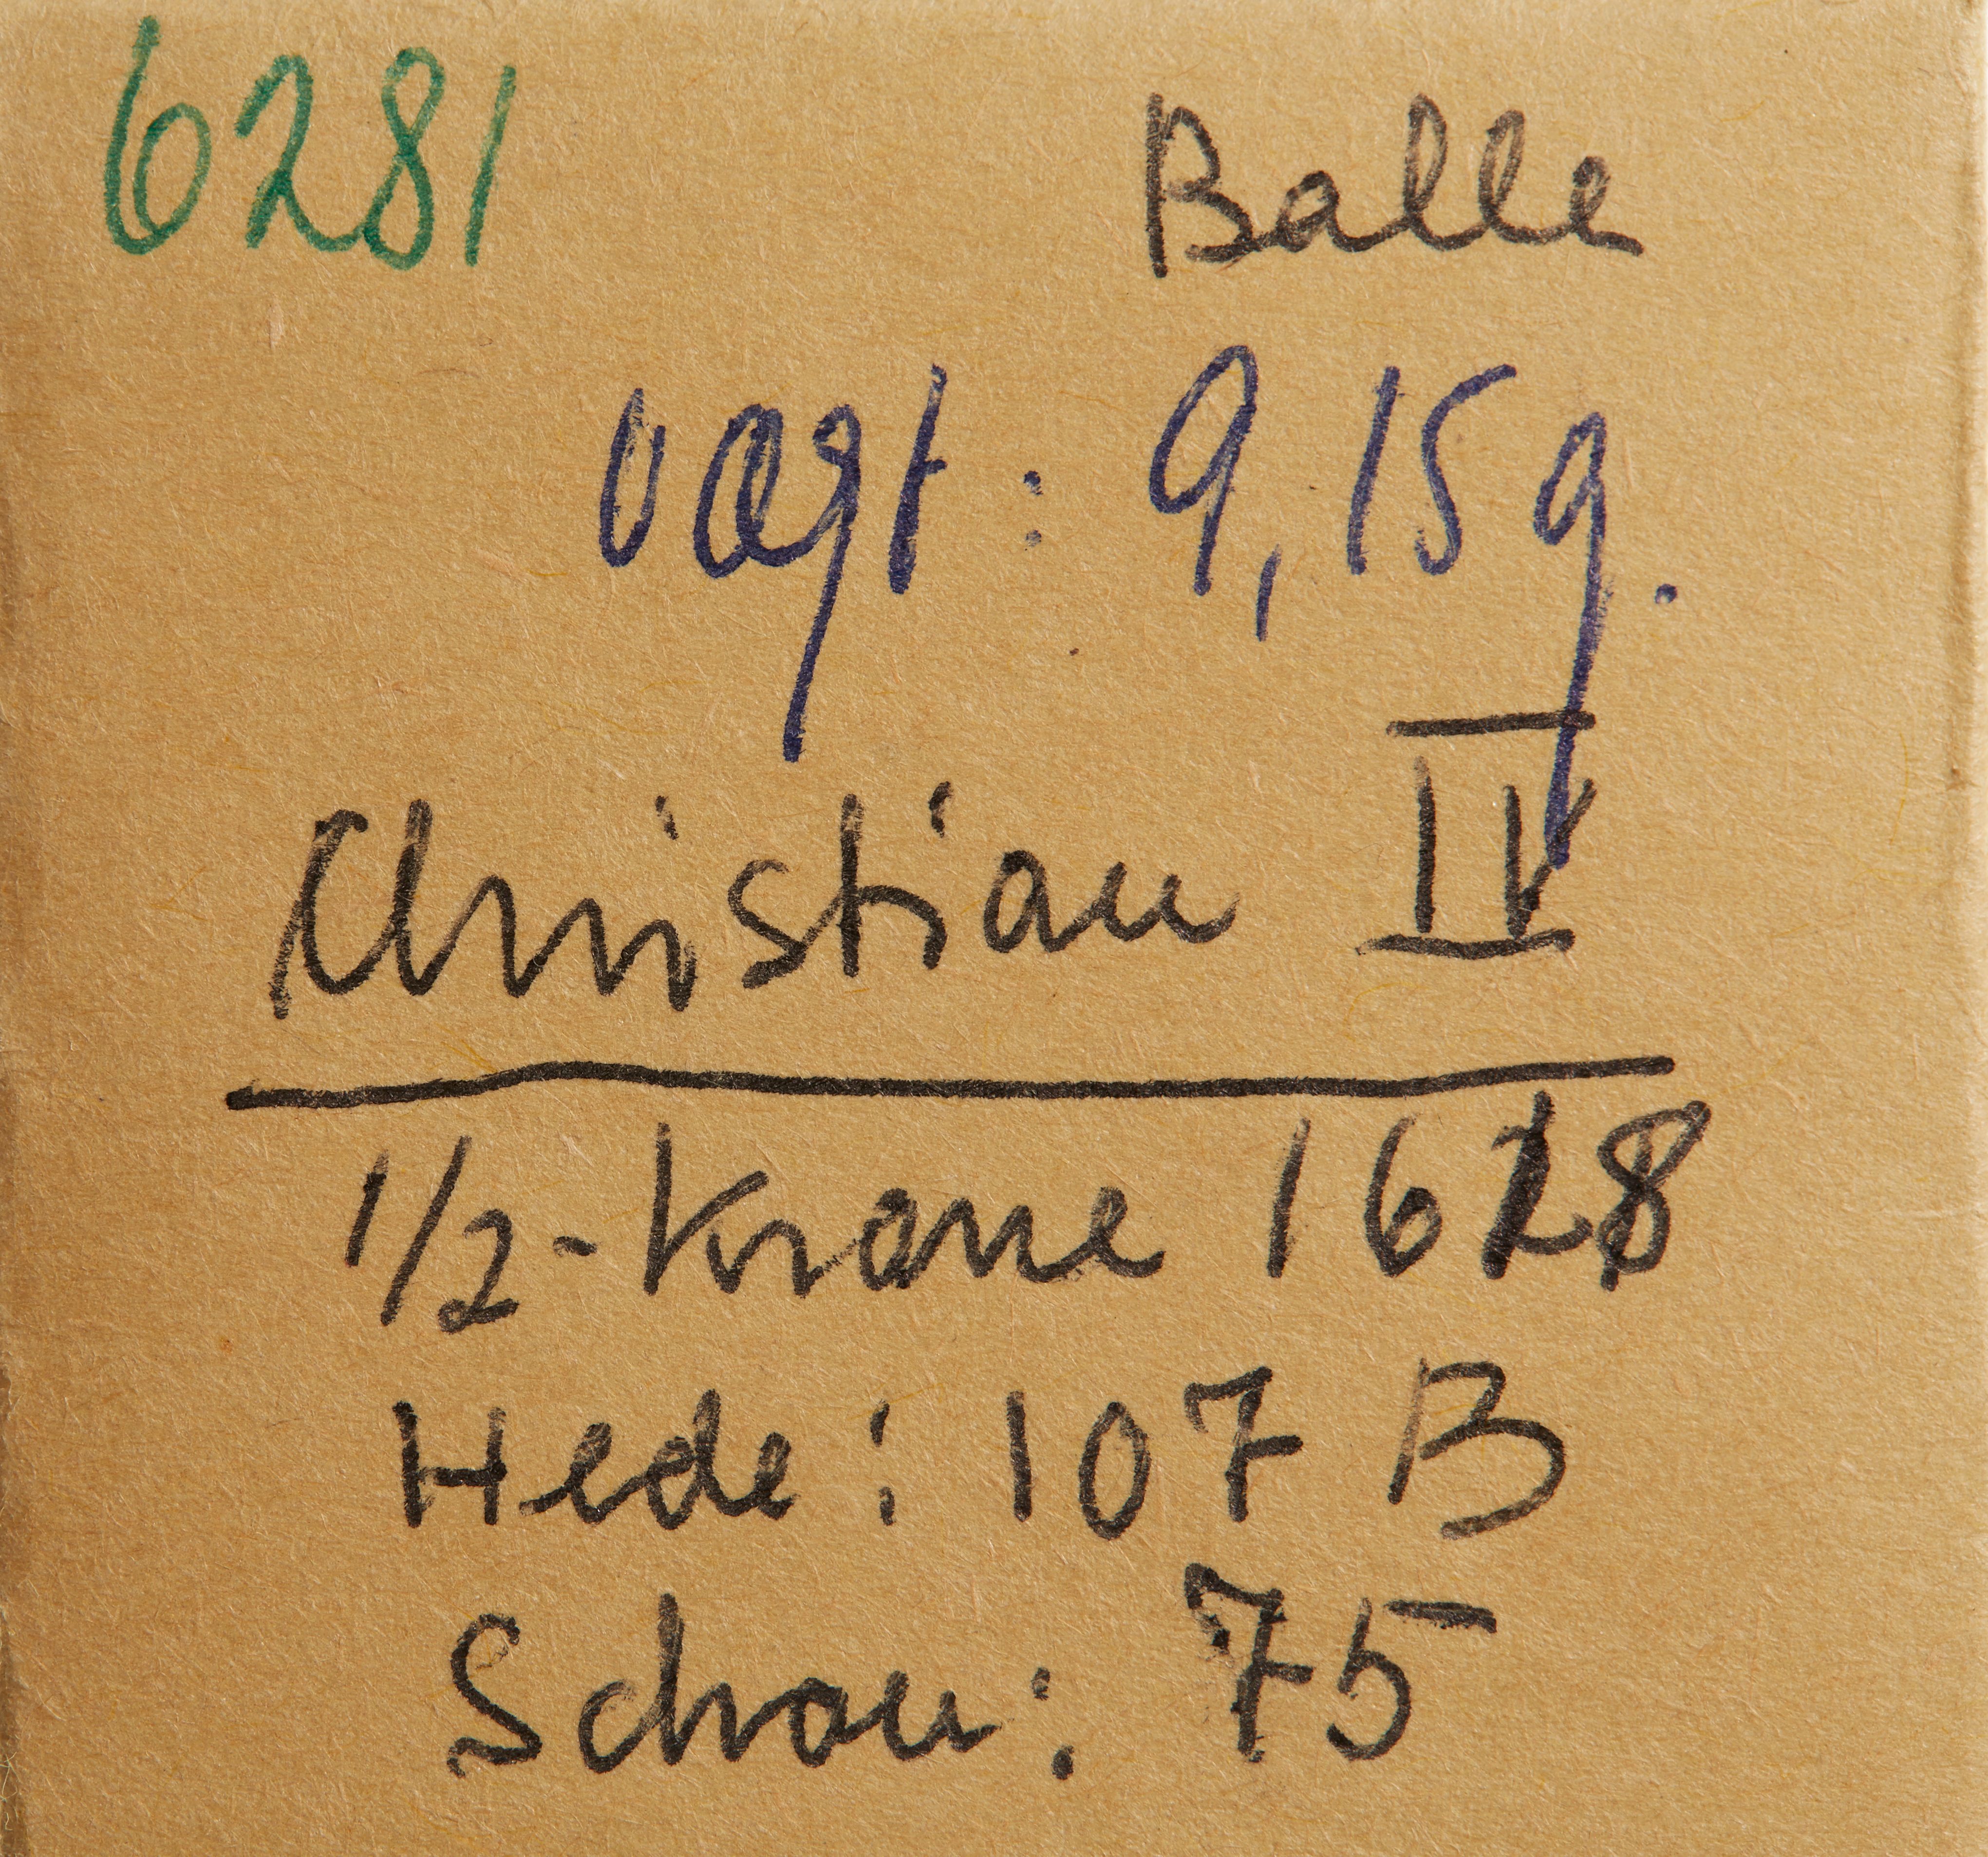 6281 Balle
vægt: 9,15 g.
Christian IV
1/2-Krone 1628
Hede: 107 B
Schou: 75